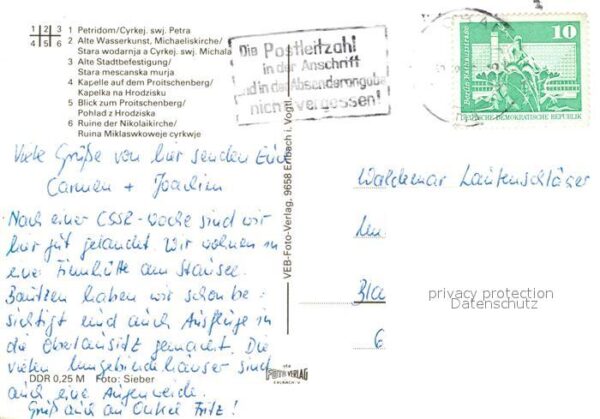 1 2 3
4 5 6
1 Petridom/Cyrkej. swj. Petra
2 Alte Wasserkunst, Michaeliskirche/
Stara wodarnja a Cyrkej. swj. Michala
3 Alte Stadtbefestigung/
Stara mescanska murja
4 Kapelle auf dem Proitschenberg/
Kapelka na Hrodzisku
5 Blick zum Proitschenberg/
Pohlad z Hrodziska
6 Ruine der Nikolaikirche/
Ruina Miklawkoweje cyrkwje
Die Postleitzahl
in der Anschrift
und in der Absenderangabe
nicht vergessen!
10
Berlin, Rathausstraße
DEUTSCHE DEMOKRATISCHE REPUBLIK
Viele Grüße von hier senden Euch
Carmen + Joachim
Nach einer CSSR-Woche sind wir
hier gut gelandet. Wir wohnen in
einer Finnhütte am Stausee.
Bautzen haben wir schon be-
sichtigt und auch Ausflüge in
die Oberlausitz gemacht. Die
vielen Umgebindehäuser sind
auch eine Augenweide.
Gruß auch an Onkel Fritz!
DDR 0,25 M Foto: Sieber
VEB-Foto-Verlag, 9658 Erlbach i. Vogtl.
VEB
FOTO VERLAG
ERLBACH-V.
Waldemar Lautenschläger
Bla
6
privacy protection
Datenschutz